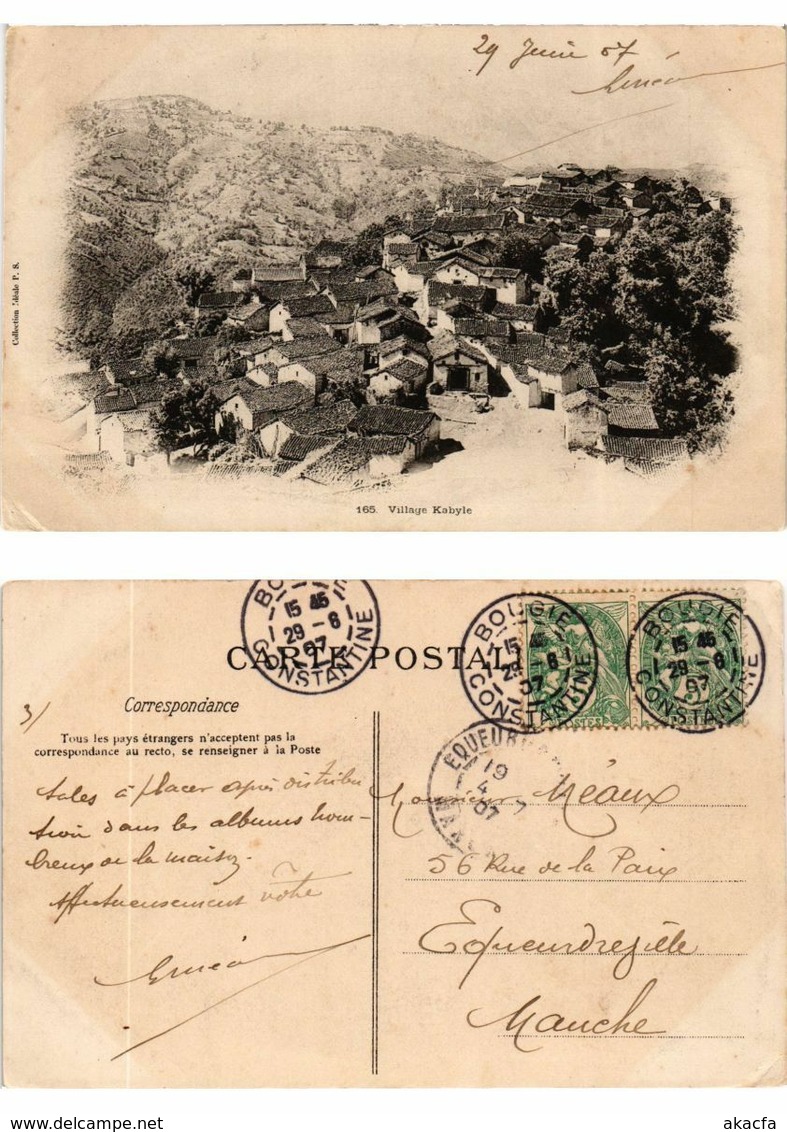 29 Juin 07
Collection Idéale P. S.
165. Village Kabyle
BOUGIE
15 45
29 - 6
07
CONSTANTINE
BOUGIE
15 45
29 - 6
07
CONSTANTINE
BOUGIE
15 45
29 - 6
07
CONSTANTINE
CARTE POSTALE
Correspondance
3/
Tous les pays étrangers n'acceptent pas la
correspondance au recto, se renseigner à la Poste
EQUEUR
19
4 - 7
07
MANCHE
tales à placer après distribu
tion dans les albums nom-
breux de la maison.
Affectueusement votre
Monsieur Méaux
56 Rue de la Paix
Equeurdreville
Manche
akacfa
www.delcampe.net